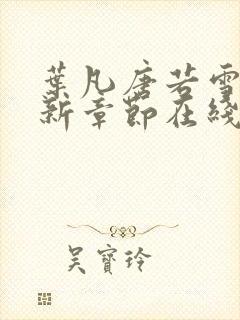 葉凡唐若雪
新章節在綫
吳寶玲